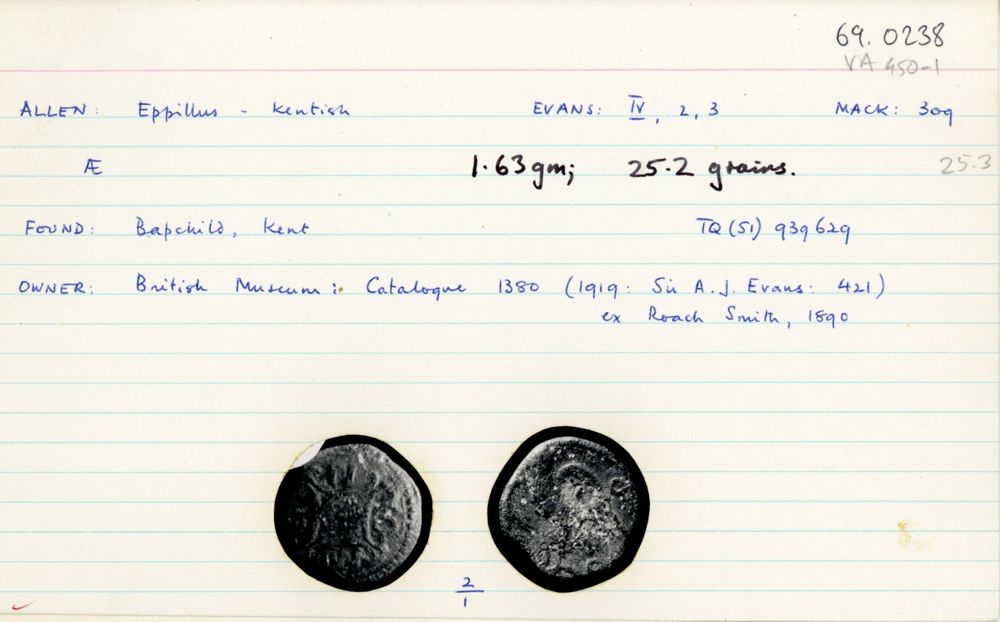 69. 0238
VA 450-1
ALLEN: Eppillus - Kentish EVANS: IV, 2, 3 MACK: 309
Æ 1.63 gm; 25.2 grains. 25.3
FOUND: Bapchild, Kent TQ (51) 939629
OWNER: British Museum: Catalogue 1380 (1919: Sir A.J. Evans: 421)
ex Roach Smith, 1890
2
1